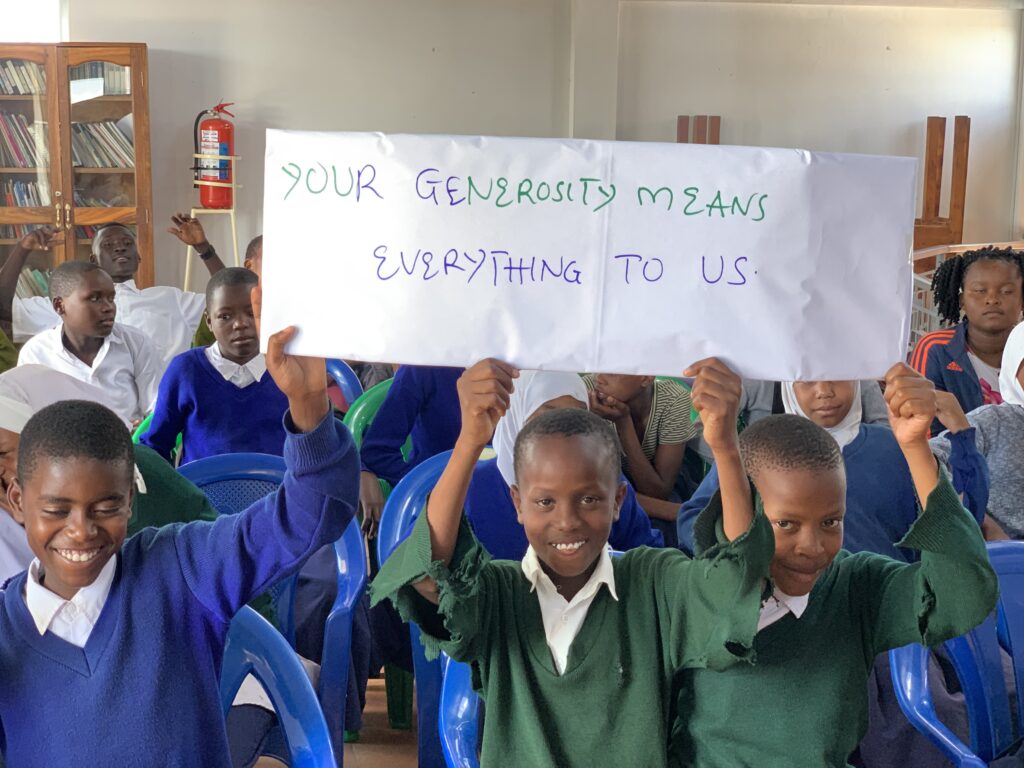 YOUR GENEROSITY MEANS
EVERYTHING TO US.